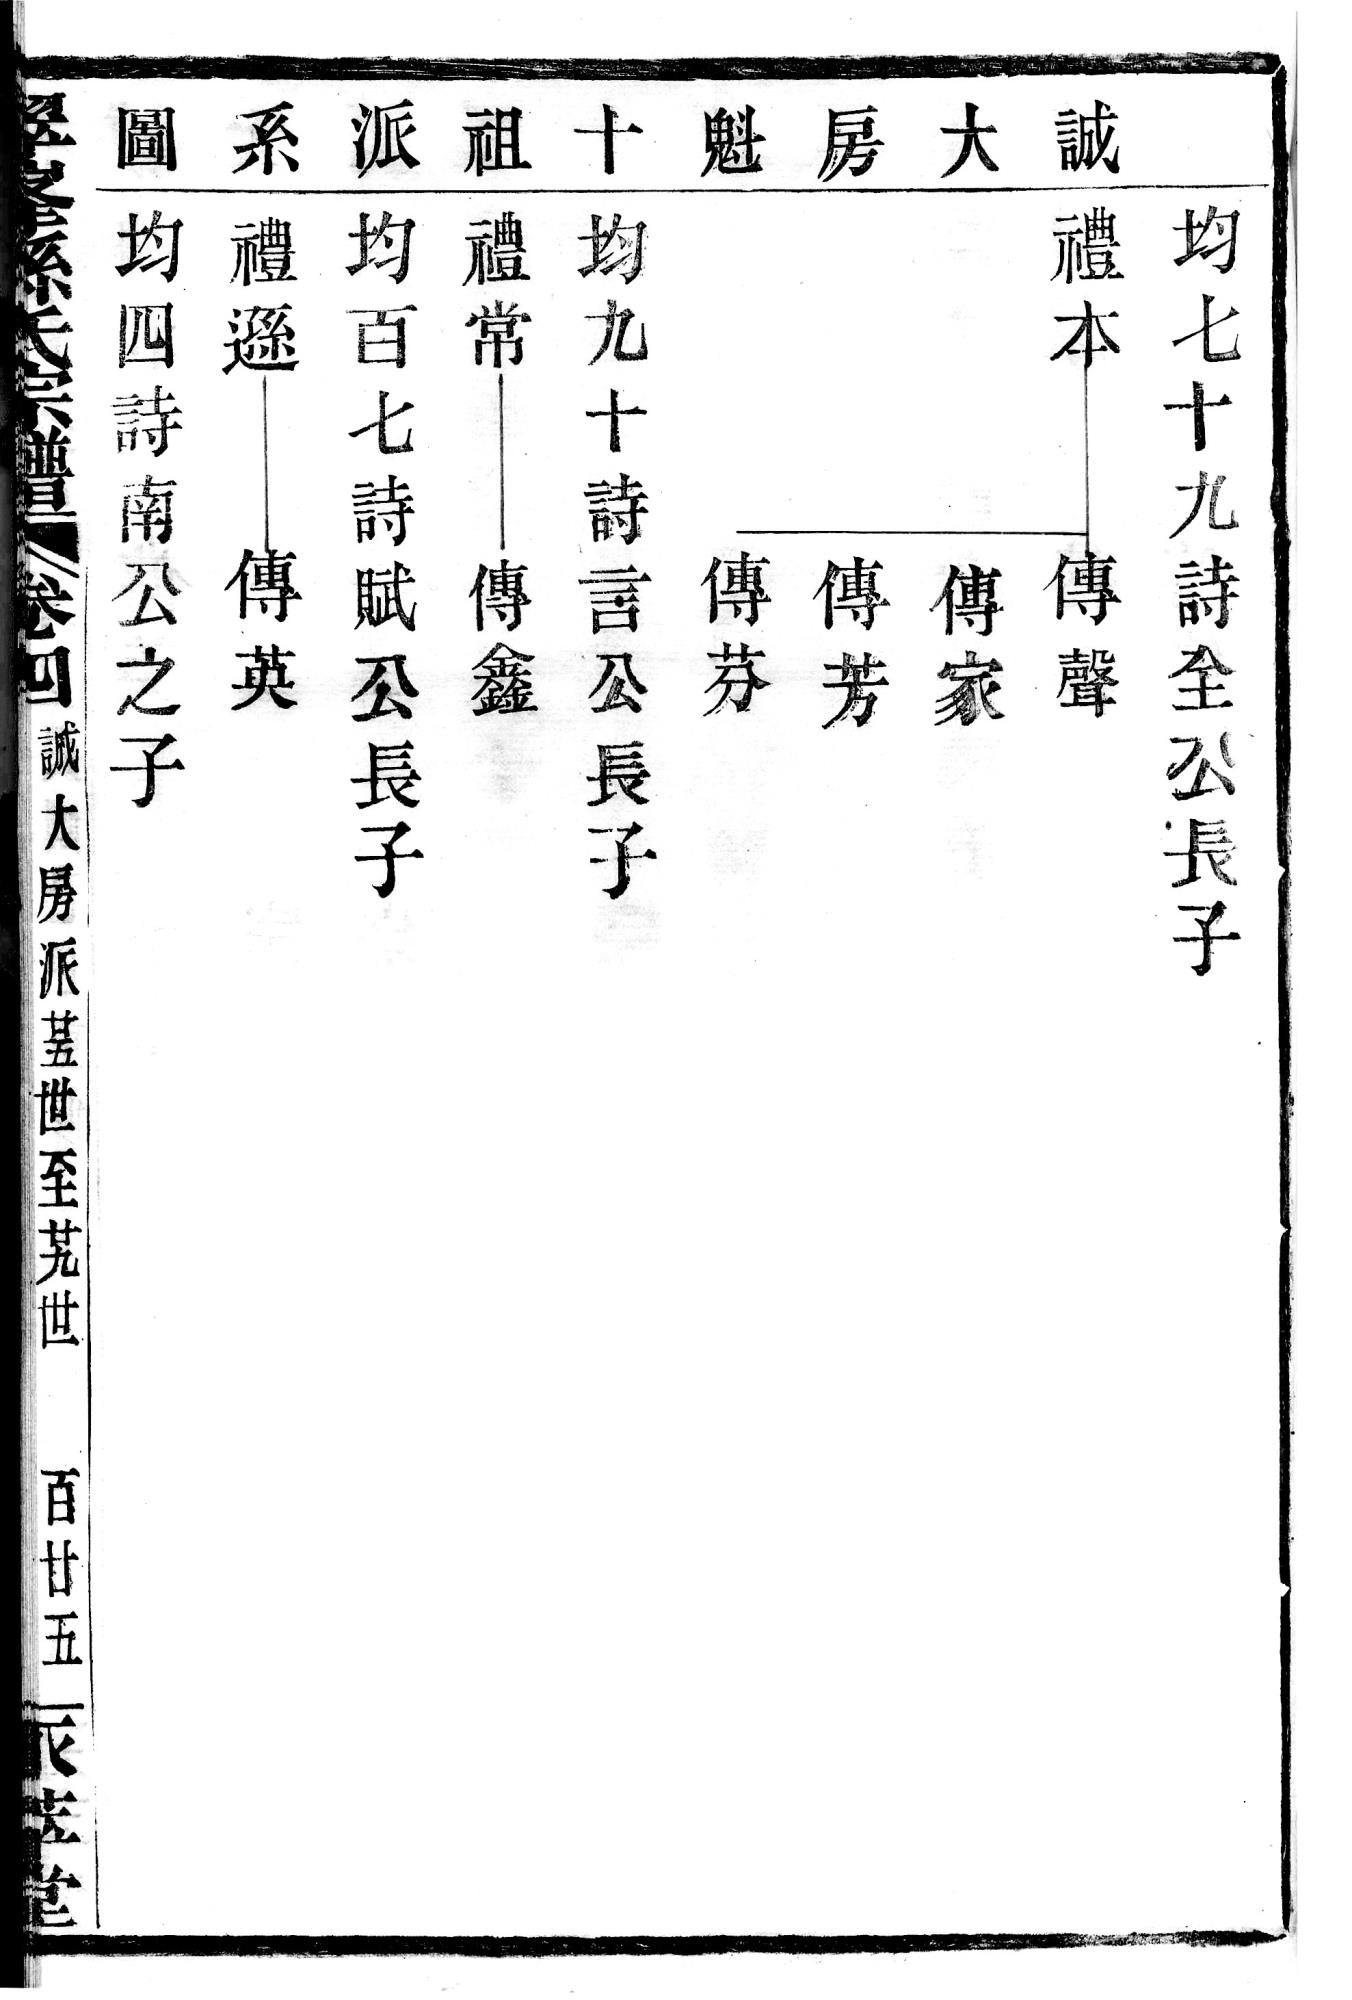 誠大房魁十祖派系圖
均七十九詩全公長子
禮本 傳聲
傳家
傳芳
傳芬
均九十詩言公長子
禮常 傳鑫
均百七詩賦公長子
禮遜 傳英
均四詩南公之子
孫氏宗譜 卷四 誠大房派 廿五世至廿九世 百廿五 堂